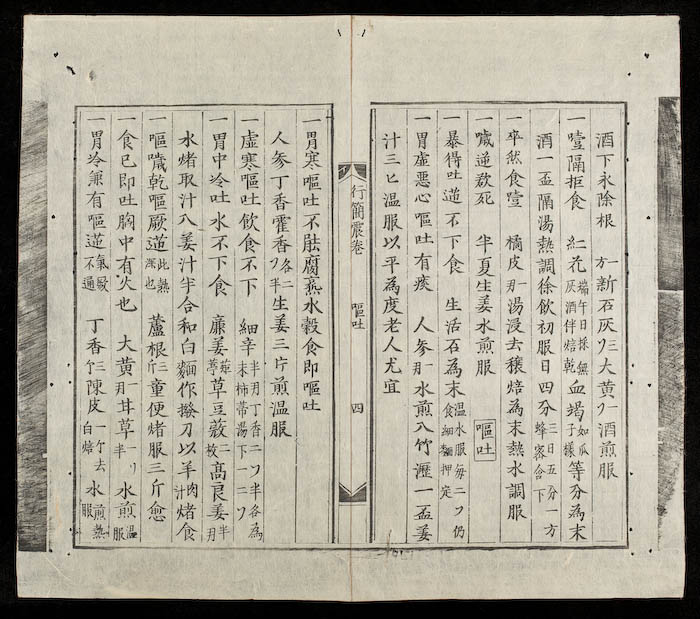 酒下永除根 一方 新石灰三大黃一酒煎服
一噎隔拒食 紅花端午日採無灰酒伴焙乾血竭子如瓜樣等分為末
酒一盃隔湯熱調徐飲初服日四分三日五分一方蜂密含下
一卒然食噎 橘皮一湯浸去穰焙為末熱水調服
一噦逆欬死 半夏生姜水煎服 嘔吐
一暴得吐逆不下食 生活石為末溫水服每二仍食細麵押定
一胃虛惡心嘔吐有痰 人參一水煎入竹瀝一盃姜
汁三匕溫服以平為度老人尤宜
行簡震卷 嘔吐 四
一胃寒嘔吐不能腐熟水穀食即嘔吐
人參丁香霍香各二半生姜三片煎溫服
一虛寒嘔吐飲食不下 細辛半丁香二半各為末柿蒂湯下一二
一胃中冷吐水不下食 廉姜草豆蔲二枚高良姜半
水煮取汁入姜汁半合和白麵作撥刀以羊肉汁煮食
一嘔噦乾嘔厥逆此熱深也 蘆根三斤童便煮服三斤愈
一食已即吐胸中有火也 大黃一甘草一半水煎溫服
一胃冷兼有嘔逆氣厥不通 丁香三陳皮一去白焙水煎熱服